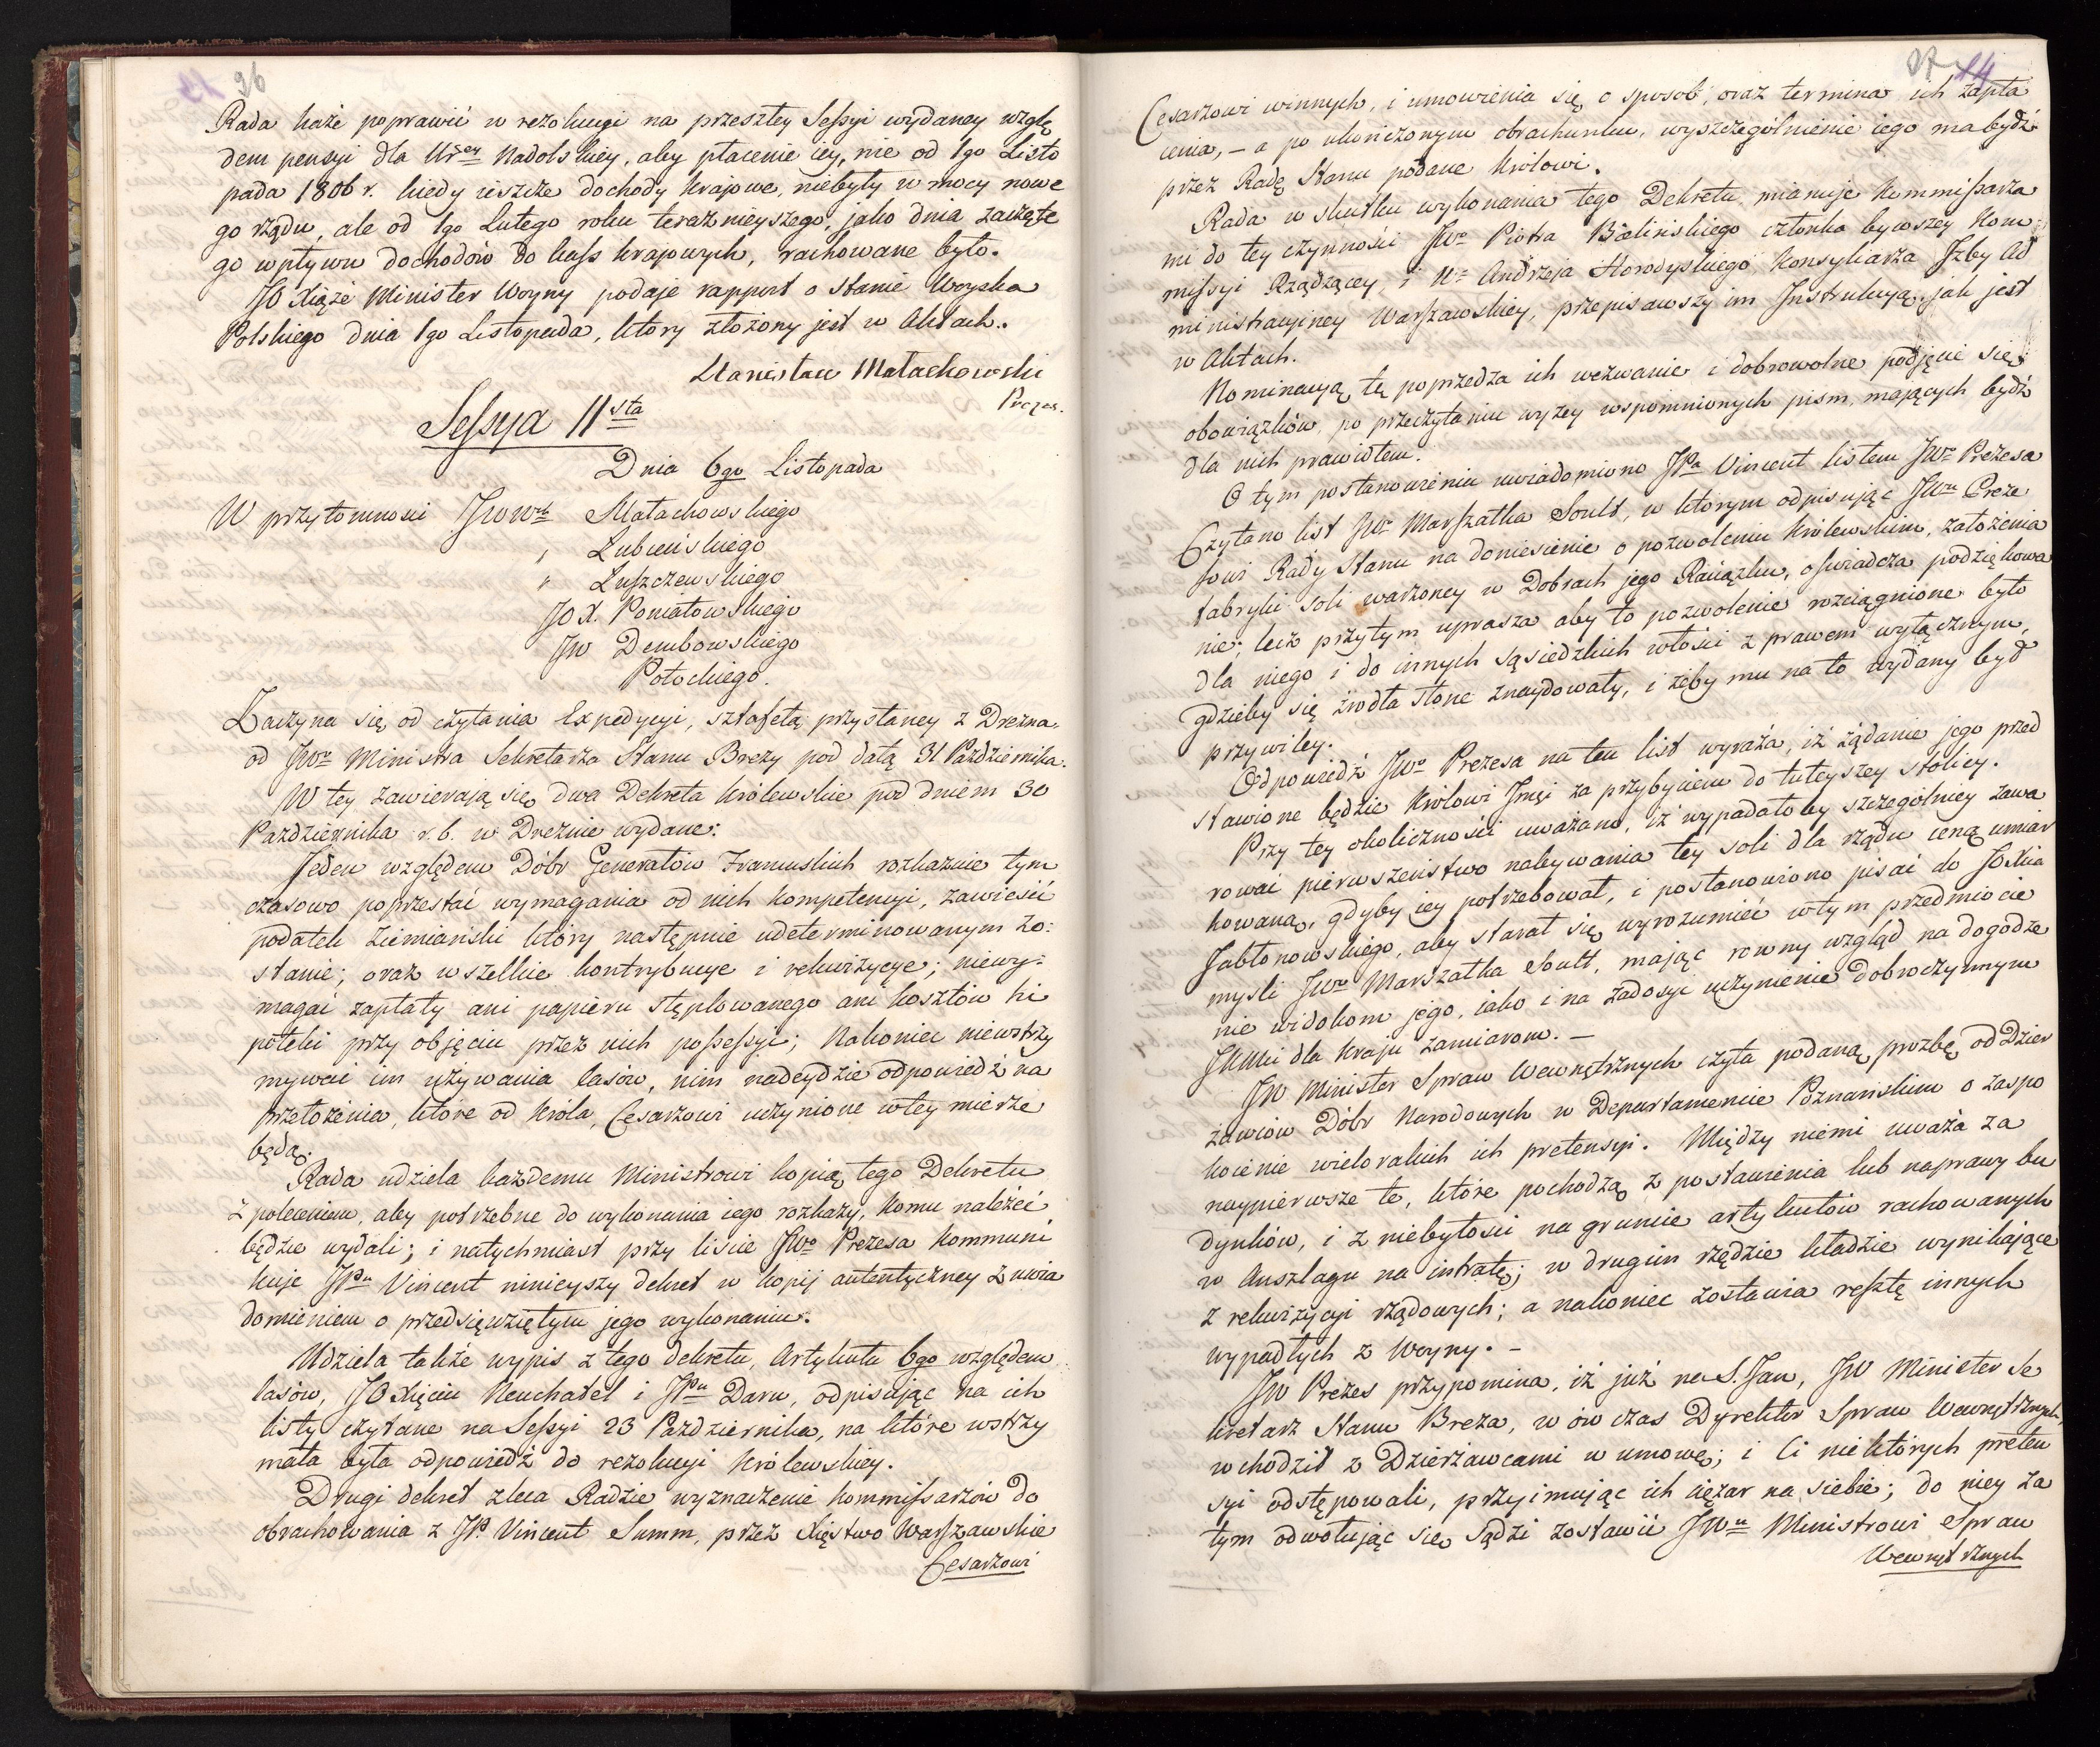 26
Rada każe poprawić w rezolucyi na przeszłey Seſsyi wydaney wzglę
dem pensyi dla Urey Nadolskiey, aby płacenie iey, nie od 1go Listo
pada 1806 r. kiedy ieszcze dochody krajowe, niebyły w mocy nowe
go rządu, ale od 1go Lutego roku teraznieyszego, jako dnia zaczęte
go wpływu dochodów do kaſs krajowych, rachowane było.
JO Xiąże Minister Woyny podaje rapport o stanie Woyska
Polskiego dnia 1go Listopada, ktory złożony jest w Aktach.
Stanisław Małachowski
Prezes.
Seſsya 11sta
Dnia 6go Listopada
W przytomnosci JWWch Małachowskiego
" Lubieńskiego
" Łuszczewskiego
JO X. Poniatowskiego
JW Dembowskiego
Potockiego.
Zaczyna się od czytania Expedycyi, sztafetą przysłaney z Drezna
od JWo Ministra Sekretarza Stanu Brezy pod datą 31 Października.
W tey zawierają się dwa Dekreta Królewskie pod dniem 30
Pazdziernika r. b. w Dreznie wydane:
Jeden względem Dóbr Generałów Francuskich rozkazuie tym
czasowo poprzestać wymagania od nich kompetencyi, zawiesić
podatek ziemiański który następnie udeterminowanym zo=
stanie; oraz wszelkie kontrybucye i rekwizycye; niewy=
magać zapłaty ani papieru stęplowanego ani kosztów hi
poteki przy objęciu przez nich poſseſsyi; Nakoniec niewstrzy
mywać im używania lasów, nim nadeydzie odpowiedź na
przełożenia, które od Króla, Cesarzowi uczynione w tey mierze
będą.
Rada udziela każdemu Ministrowi kopią tego Dekretu
z poleceniem, aby potrzebne do wykonania iego rozkazy, komu należeć
będzie wydali; i natychmiast przy liście JWo Prezesa kommuni
kuje JPu Vincent ninieyszy dekret w kopij autentyczney z uwia
domieniem o przedsięwziętym jego wykonaniu.
Udziela także wypis z tego dekretu, Artykułu 6go względem
lasów, JO Xięciu Neuchatel i JPu Daru, odpisując na ich
listy czytane na Seſsyi 23 Pazdziernika, na które wstrzy
mała była odpowiedź do rezolucyi Królewskiey.
Drugi dekret zleca Radzie wyznaczenie Kommiſsarzów do
obrachowania z JP. Vincent Summ, przez Xięstwo Warſzawskie
Cesarzowi
27 14
Cesarzowi winnych, i umowienia się o sposob, oraz termina ich zapła
cenia, – a po ukończonym obrachunku, wyszczególnienie iego ma bydź
przez Radę Stanu podane Królowi.
Rada w skutku wykonania tego Dekretu mianuje Kommiſsarza
mi do tey czynności JWo Piotra Bielińskiego członka bywszey Kom=
miſsyi Rządzącey i Wo Andrzeja Horodyskiego Konsyliarza Izby Ad
ministracyiney Warſzawskiey, przepisawszy im Instrukcyą, jak jest
w Aktach.
Nominacyą tę poprzedza ich wezwanie i dobrowolne podjęcie się
obowiązków, po przeczytaniu wyżey wspomnionych pism, mających bydź
dla nich prawidłem.
O tym postanowieniu uwiadomiono JPa Vincent listem JWo Prezesa
Czytano list JWo Marſzałka Soult, w którym odpisując JWu Preze
sowi Rady Stanu na doniesienie o pozwoleniu Królewskim, założenia
fabryki soli warzoney w Dobrach jego Raciązku, oświadcza podziękowa
nie; lecz przytym uprasza aby to pozwolenie rozciągnione było
dla niego i do innych sąsiedzkich włości z prawem wyłącznym,
gdzieby się źrodła słone znaydowały, i żeby mu na to wydany był
przywiley.
Odpowiedź JWo Prezesa na ten list wyraża, iż żądanie jego przed
stawione będzie Królowi Jmci za przybyciem do tuteyszey stolicy.
Przy tey okoliczności uważano, iż wypadałoby szczegolniey zawa
rować pierwszeństwo nabywania tey soli dla rządu ceną umiar
kowaną, gdyby iey potrzebował, i postanowiono pisać do JO Xcia
Jabłonowskiego, aby starał się wyrozumieć w tym przedmiocie
mysli JWo Marszałka Soult, mając rowny wzgląd na dogodze
nie widokom jego, iako i na zadosyć uczynienie dobroczynnym
JKMci dla Kraju zamiarom. –
JW Minister Spraw Wewnętrznych czyta podaną prozbę od Dzier
żawców Dóbr Narodowych w Departamencie Poznańskim o zaspo
kojenie wielorakich ich pretensyi. Między niemi uważa za
naypierwsze te, które pochodzą z postawienia lub naprawy bu
dynków, i z niebytości na gruncie artykułów rachowanych
w Anszlagu na intratę; w drugim rzędzie kładzie wynikające
z rekwizycyi rządowych; a nakoniec zostawia reſztę innych
wypadłych z Woyny. –
JW Prezes przypomina, iż już na S. Jan, JW Minister Se
kretarz Stanu Breza, w ów czas Dyrektor Spraw Wewnętrznych,
wchodził z Dzierżawcami w umowę; i Ci niektórych preten
syi odstępowali, przyimując ich ciężar na siebie; do niey za
tym odwołując się sądzi zostawić JWu Ministrowi Spraw
Wewnętrznych